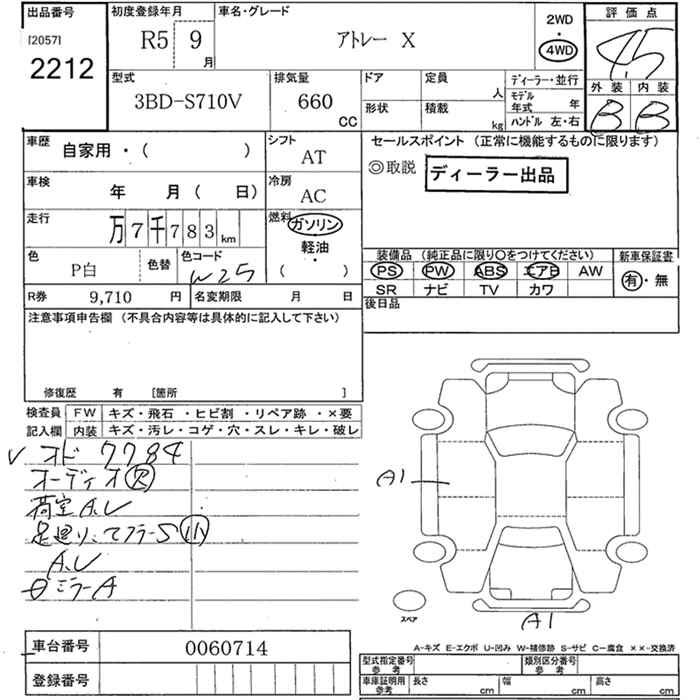 出品番号
[2057]
2212
初度登録年月
R5 9月
車名・グレード
アトレー X
2WD
・
4WD
評価点
4.5
外装 内装
B B
型式
3BD-S710V
排気量
660
CC
ドア
形状
定員
人
積載
kg
ディーラー・並行
モデル年式 年
ハンドル 左・右
車歴 自家用・( )
シフト
AT
車検 年 月( 日)
冷房
AC
走行 万7千783km
燃料 ガソリン
・
軽油
・
( )
色 P白
色替
色コード
W25
R券 9,710 円
名変期限 月 日
セールスポイント (正常に機能するものに限ります)
◎取説 ディーラー出品
装備品 (純正品に限り○をつけてください)
PS PW ABS エアB AW
SR ナビ TV カワ
新車保証書
有・無
後日品
注意事項申告欄 (不具合内容等は具体的に記入して下さい)
修復歴 有 [箇所 ]
検査員記入欄
FW キズ・飛石・ヒビ割・リペア跡・×要
内装 キズ・汚レ・コゲ・穴・スレ・キレ・破レ
オド 7784
オーディオ欠
荷室A.U
足廻り、マフラーS小
A.U
ミラーA
A1
A1
スペア
車台番号 0060714
登録番号
A-キズ E-エクボ U-凹み W-補修跡 S-サビ C-腐食 ××-交換済
型式指定番号 参考
類別区分番号 参考
車庫証明用 参考
長さ cm
幅 cm
高さ cm